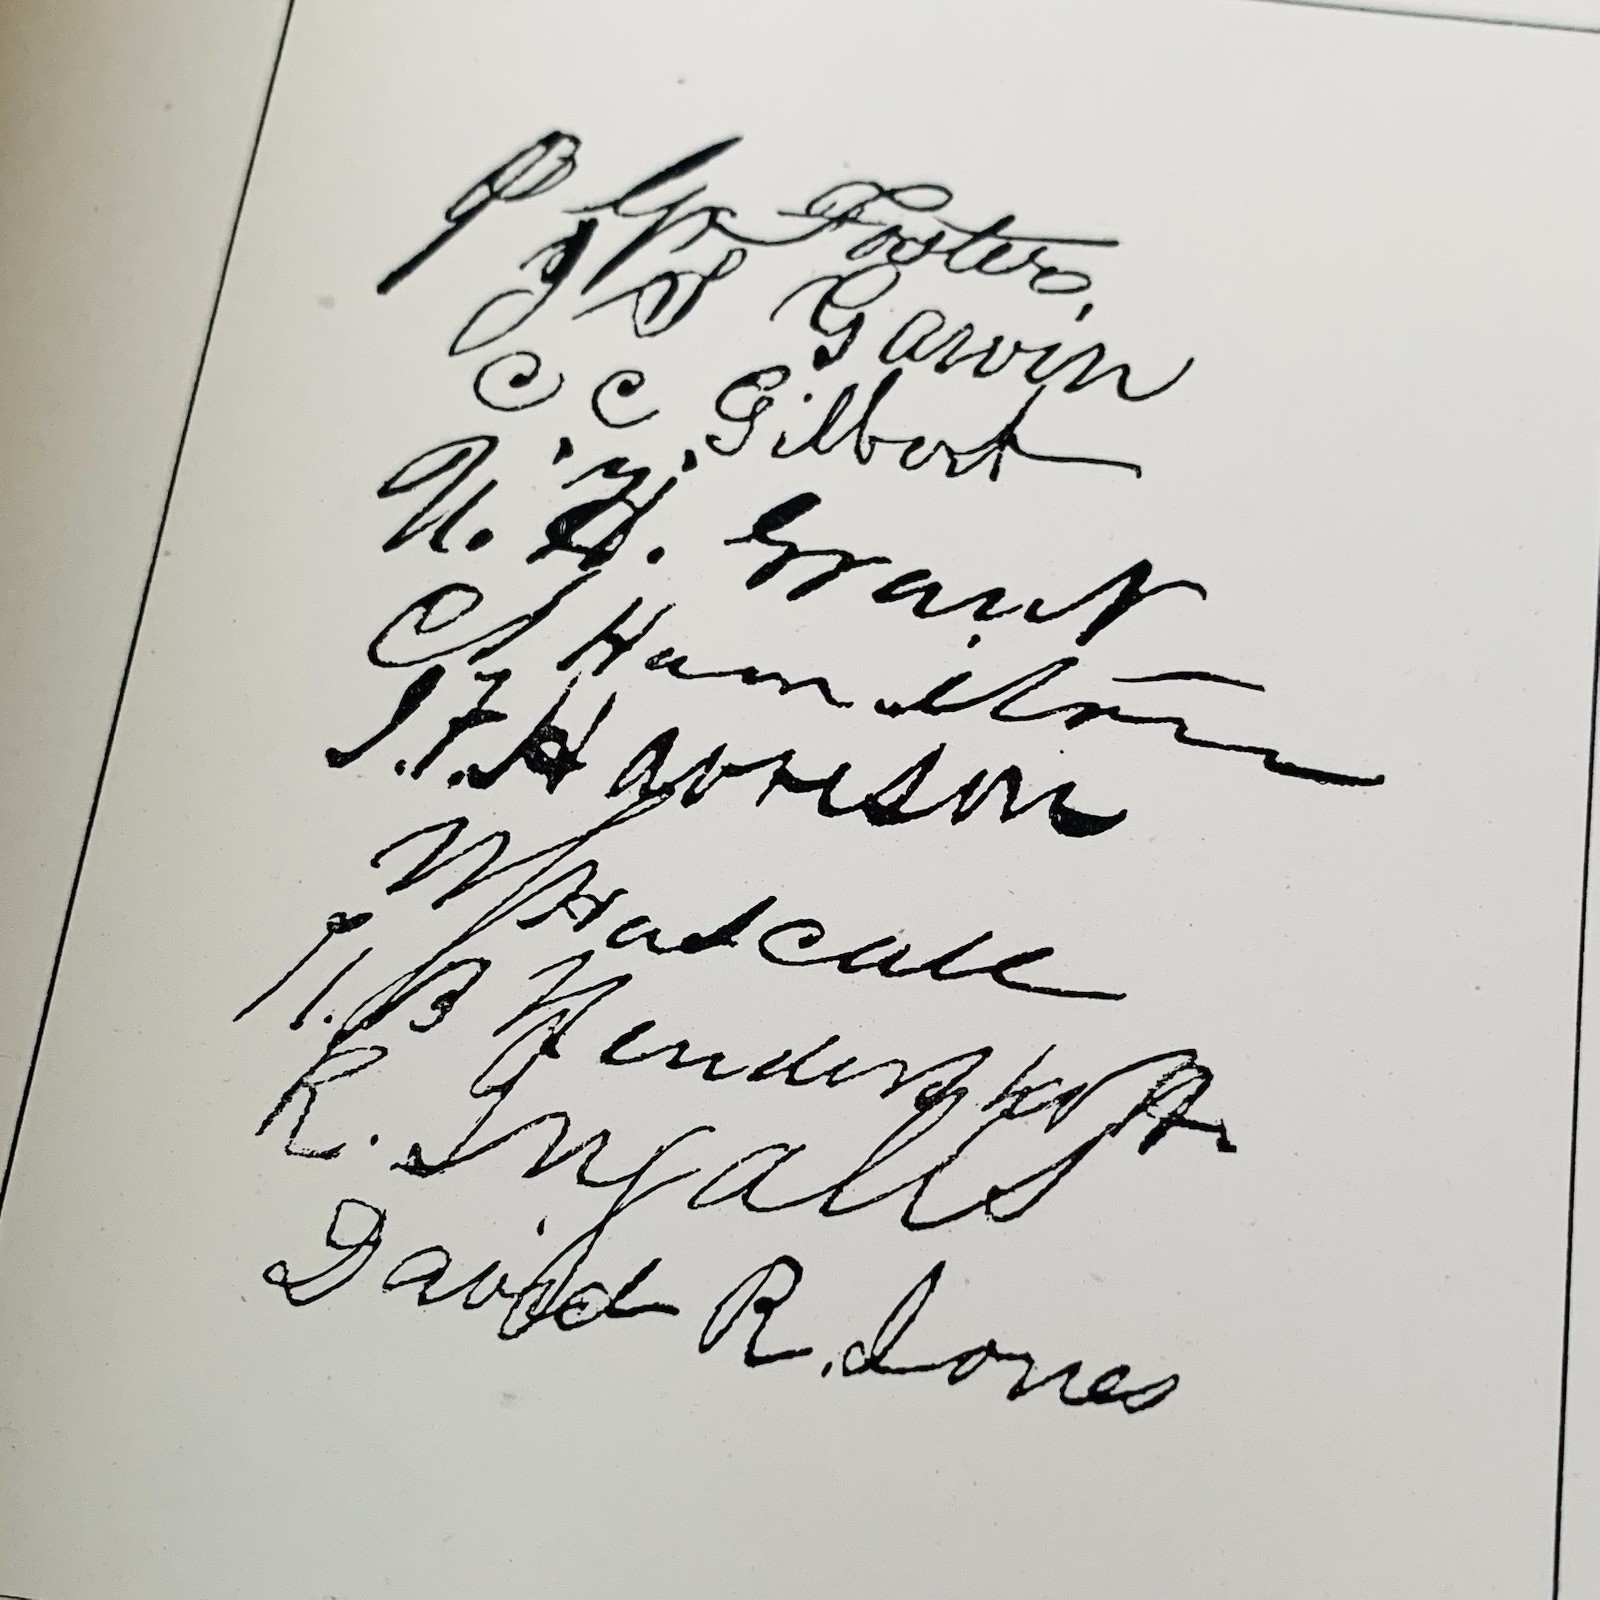 Foster,
Garvin
C C Gilbert
Grant
Hamilton
Harrison
W Hascall
R. Ingalls
David R. Jones